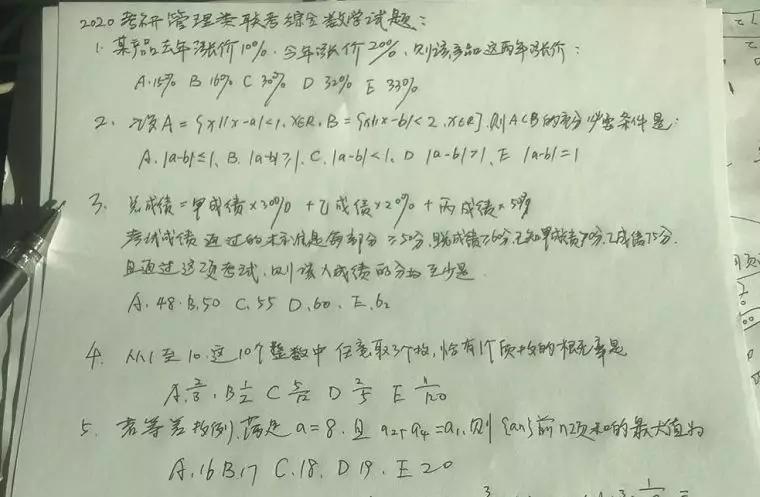 2020考研管理类联考综合数学试题:
1. 某产品去年涨价10%,今年涨价20%,则该产品这两年涨价:
A.15% B 16% C 30% D 32% E 33%
2. 设A={x||x-a|<1,x∈R,B={x||x-b|<2,x∈R},则A⊂B的充分必要条件是:
A.|a-b|≤1, B.|a-b|≥1, C.|a-b|<1, D |a-b|>1, E |a-b|=1
3. 总成绩=甲成绩×30%+乙成绩×20%+丙成绩×50%
考试成绩通过的标准是每部分≥50分,且总成绩≥60分,已知甲成绩70分,乙成绩75分,
且通过这项考试,则该人成绩的分数至少是
A.48.B.50 C.55 D.60.E.62
4. 从1至10这10个整数中任意取3个数,恰有1个质数的概率是
A.2/3.B 1/2 C 5/12 D 2/5 E 1/120
5. 若等差数列满足a=8,且a2+a4=a1,则{an}前n项和的最大值为
A.16 B.17 C.18. D 19. E 20